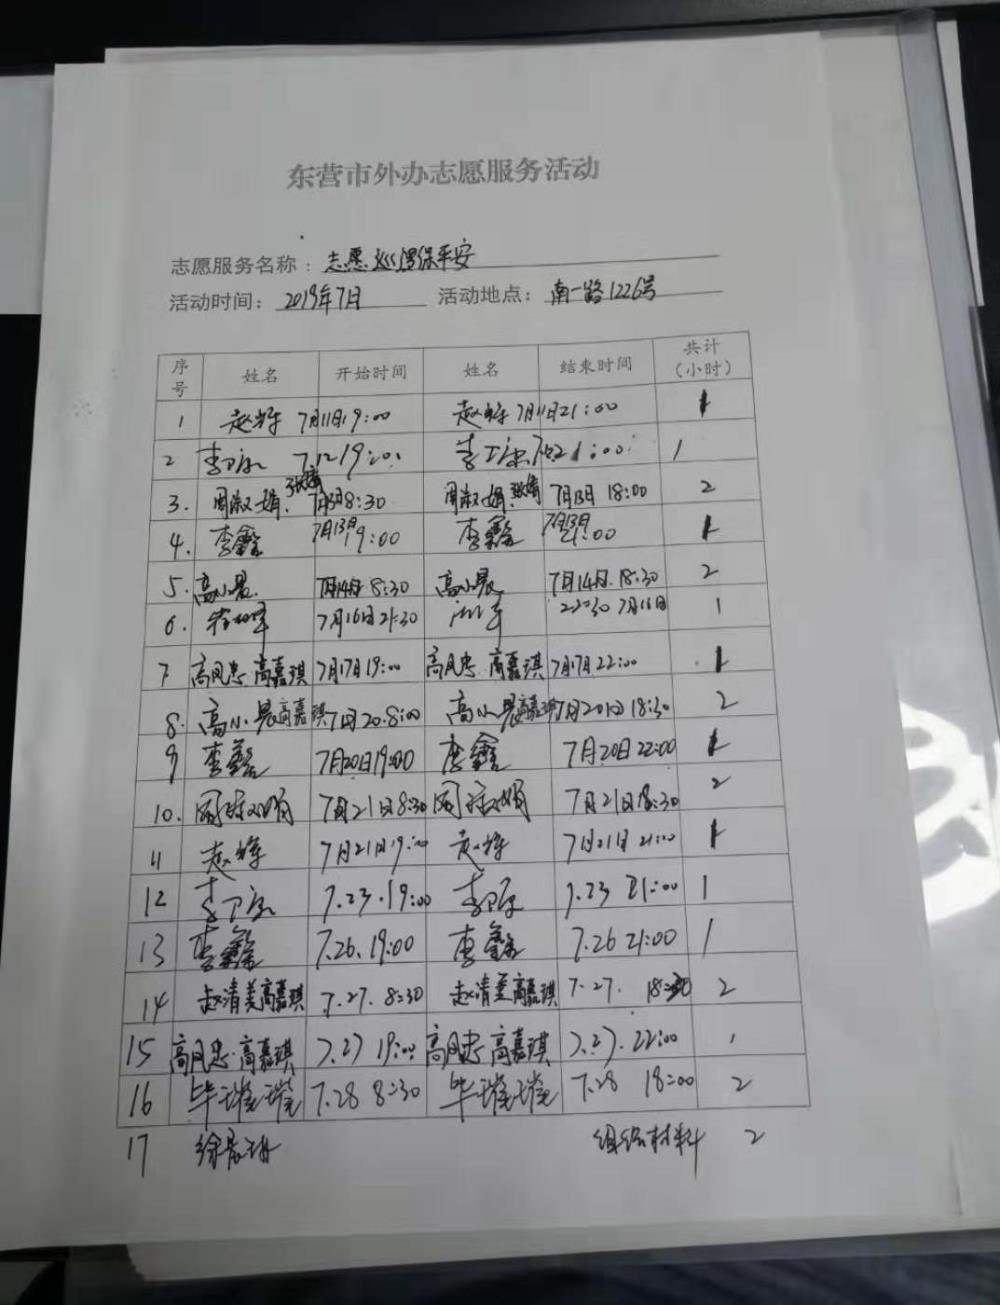 东营市外办志愿服务活动
志愿服务名称：志愿巡逻保平安
活动时间：2019年7月 活动地点：南一路1226号
序号 姓名 开始时间 姓名 结束时间 共计（小时）
1 赵 7月11日19:00 赵 7月11日21:00 1
2 李卫 7.12 19:00 李卫 21:00 1
3. 周淑娟、张婧 7月13日8:30 周淑娟、张婧 7月13日 18:00 2
4. 李鑫 7月13日19:00 李鑫 7月13日21:00 1
5. 高小晨 7月14日 8:30 高小晨 7月14日. 18:30 2
6. 7月16日21:30 22:30 7月16日 1
7 高风忠 高嘉琪 7月17日19:00 高风忠 高嘉琪 7月17日22:00 1
8. 高小晨高嘉琪 7月20.8:00 高小晨高嘉琪 7月20日18:30 2
9 李鑫 7月20日19:00 李鑫 7月20日22:00 1
10. 周淑娟 7月21日8:30 周淑娟 7月21日18:30 2
11 赵 7月21日19:00 赵 7月21日 21:00 1
12 李卫 7.23.19:00 李卫 7.23 21:00 1
13 李鑫 7.26.19:00 李鑫 7.26 21:00 1
14 赵清美高嘉琪 7.27. 8:30 赵清美高嘉琪 7.27. 18:30 2
15 高风忠.高嘉琪 7.27 19:00 高风忠 高嘉琪 7.27.22:00 1
16 毕璇璇 7.28 8:30 毕璇璇 7.28 18:00 2
17 徐晨 组织材料 2